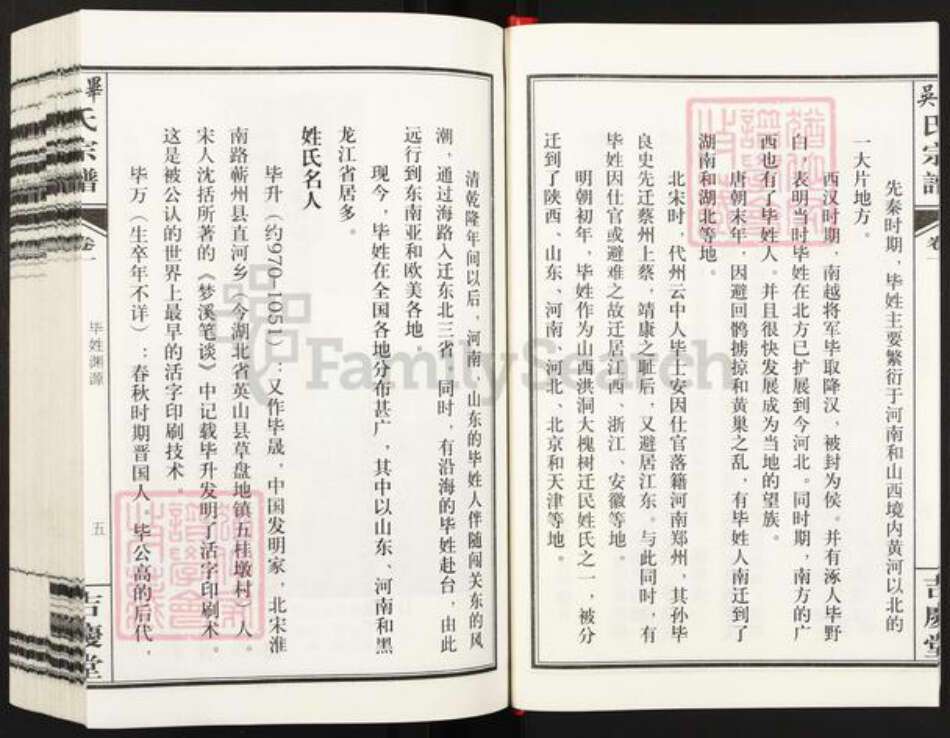 氏宗譜
卷一
吉慶堂
先秦时期，毕姓主要繁衍于河南和山西境内黄河以北的
一大片地方。
西汉时期，南越将军毕取降汉，被封为侯。并有涿人毕野
白，表明当时毕姓在北方已扩展到今河北。同时期，南方的广
西也有了毕姓人。并且很快发展成为当地的望族。
唐朝末年，因避回鹘掳掠和黄巢之乱，有毕姓人南迁到了
湖南和湖北等地。
北宋时，代州云中人毕士安因仕官落籍河南郑州，其孙毕
良史先迁蔡州上蔡，靖康之耻后，又避居江东。与此同时，有
毕姓因仕官或避难之故迁居江西、浙江、安徽等地。
明朝初年，毕姓作为山西洪洞大槐树迁民姓氏之一，被分
迁到了陕西、山东、河南、河北、北京和天津等地。
清乾隆年间以后，河南、山东的毕姓人伴随闯关东的风
潮，通过海路入迁东北三省。同时，有沿海的毕姓赴台，由此
远行到东南亚和欧美各地。
现今，毕姓在全国各地分布甚广，其中以山东、河南和黑
龙江省居多。
姓氏名人
毕升（约970—1051）：又作毕晟，中国发明家，北宋淮
南路蕲州县直河乡（今湖北省英山县草盘地镇五桂墩村）人。
宋人沈括所著的《梦溪笔谈》中记载毕升发明了活字印刷术。
这是被公认的世界上最早的活字印刷技术。
毕万（生卒年不详）：春秋时期晋国人。毕公高的后代，
畢氏宗譜
卷一
毕姓渊源
五
吉慶堂
FamilySearch